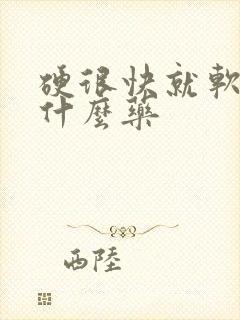 硬很快就軟
什麼藥
西陸